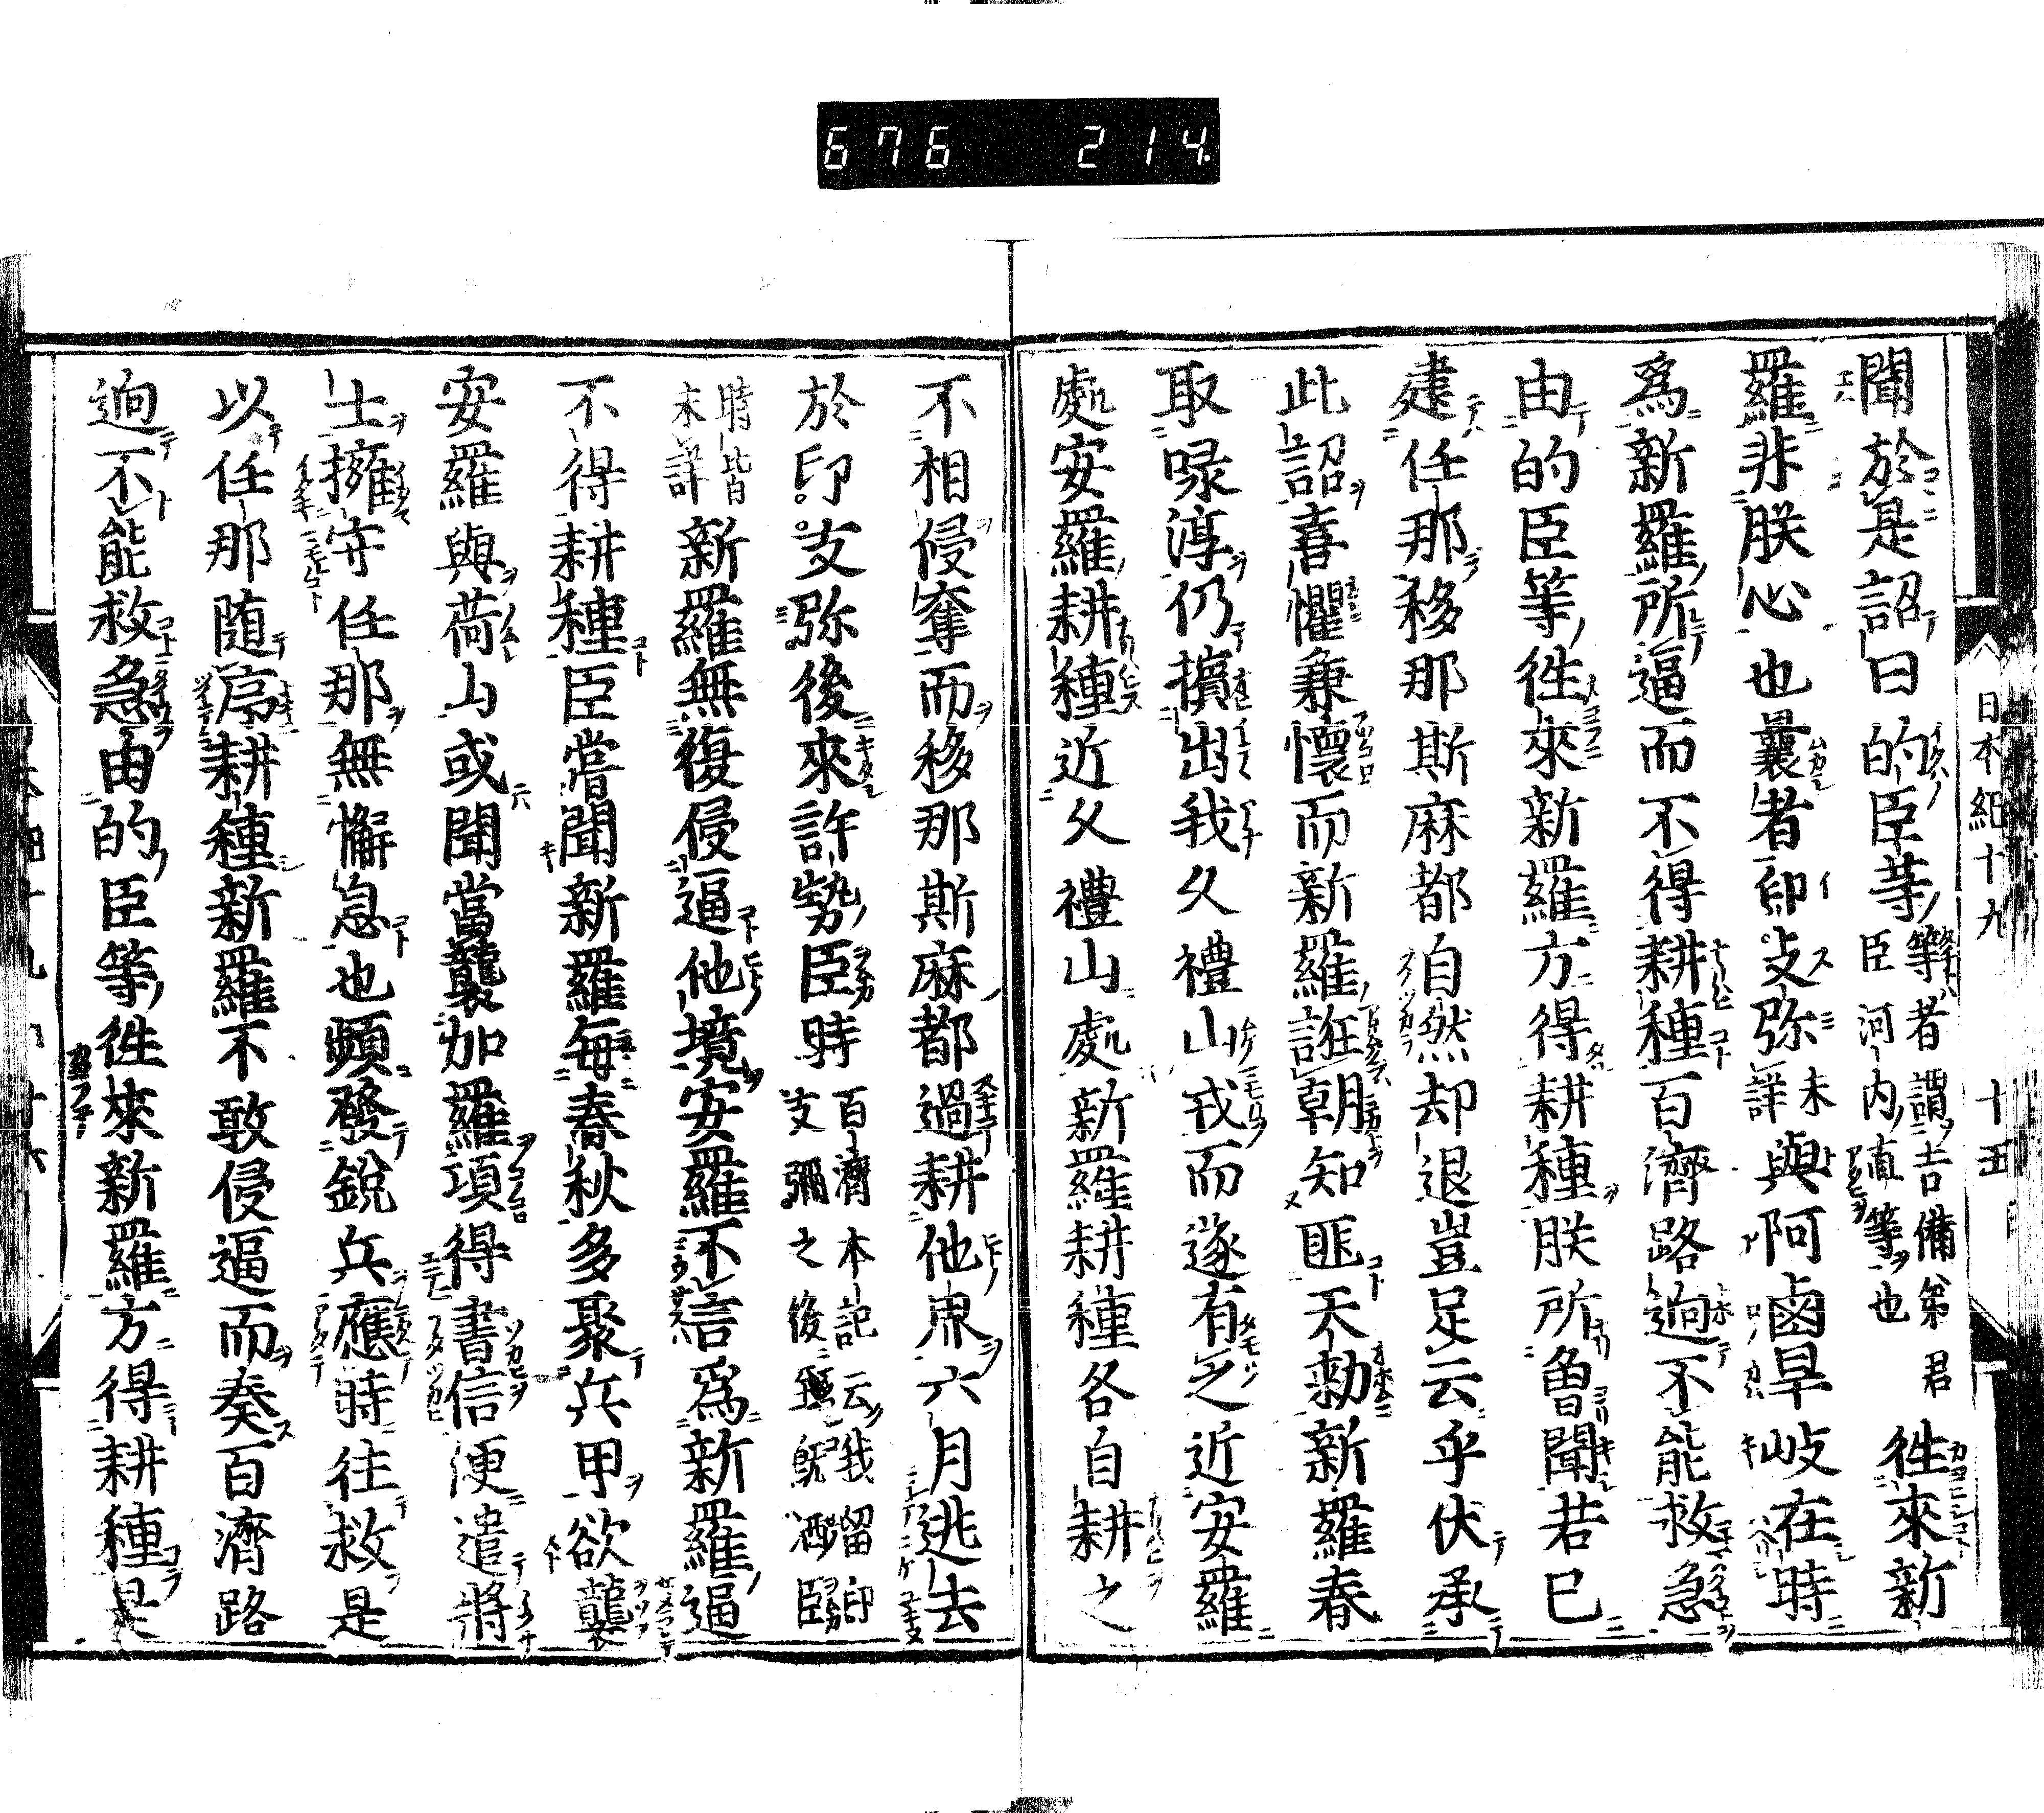 676 214
日本紀十九 十五
聞於是詔曰的臣等等者謂吉備弟君臣河内直等也徃來新
羅非朕心也曩者印支弥未詳與阿鹵旱岐在時
爲新羅所逼而不得耕種百濟路逈不能救急
由的臣等徃來新羅方得耕種朕所曾聞若已
建任那移那斯麻都自然却退豈足云乎伏承
此詔喜懼兼懷而新羅誑朝知匪天勅新羅春
取㖨淳仍擯出我久禮山戍而遂有之近安羅
處安羅耕種近久禮山處新羅耕種各自耕之
不相侵奪而移那斯麻都過耕他界六月逃去
於印支弥後來許勢臣時百濟本記云我留印支彌之後至既洒臣
時皆未詳新羅無復侵逼他境安羅不信爲新羅逼
不得耕種臣嘗聞新羅每春秋多聚兵甲欲襲
安羅與荷山或聞當襲加羅項得書信便遣將
士擁守任那無懈息也頻發銳兵應時往救是
以任那随序耕種新羅不敢侵逼而奏百濟路
逈不能救急由的臣等徃來新羅方得耕種是